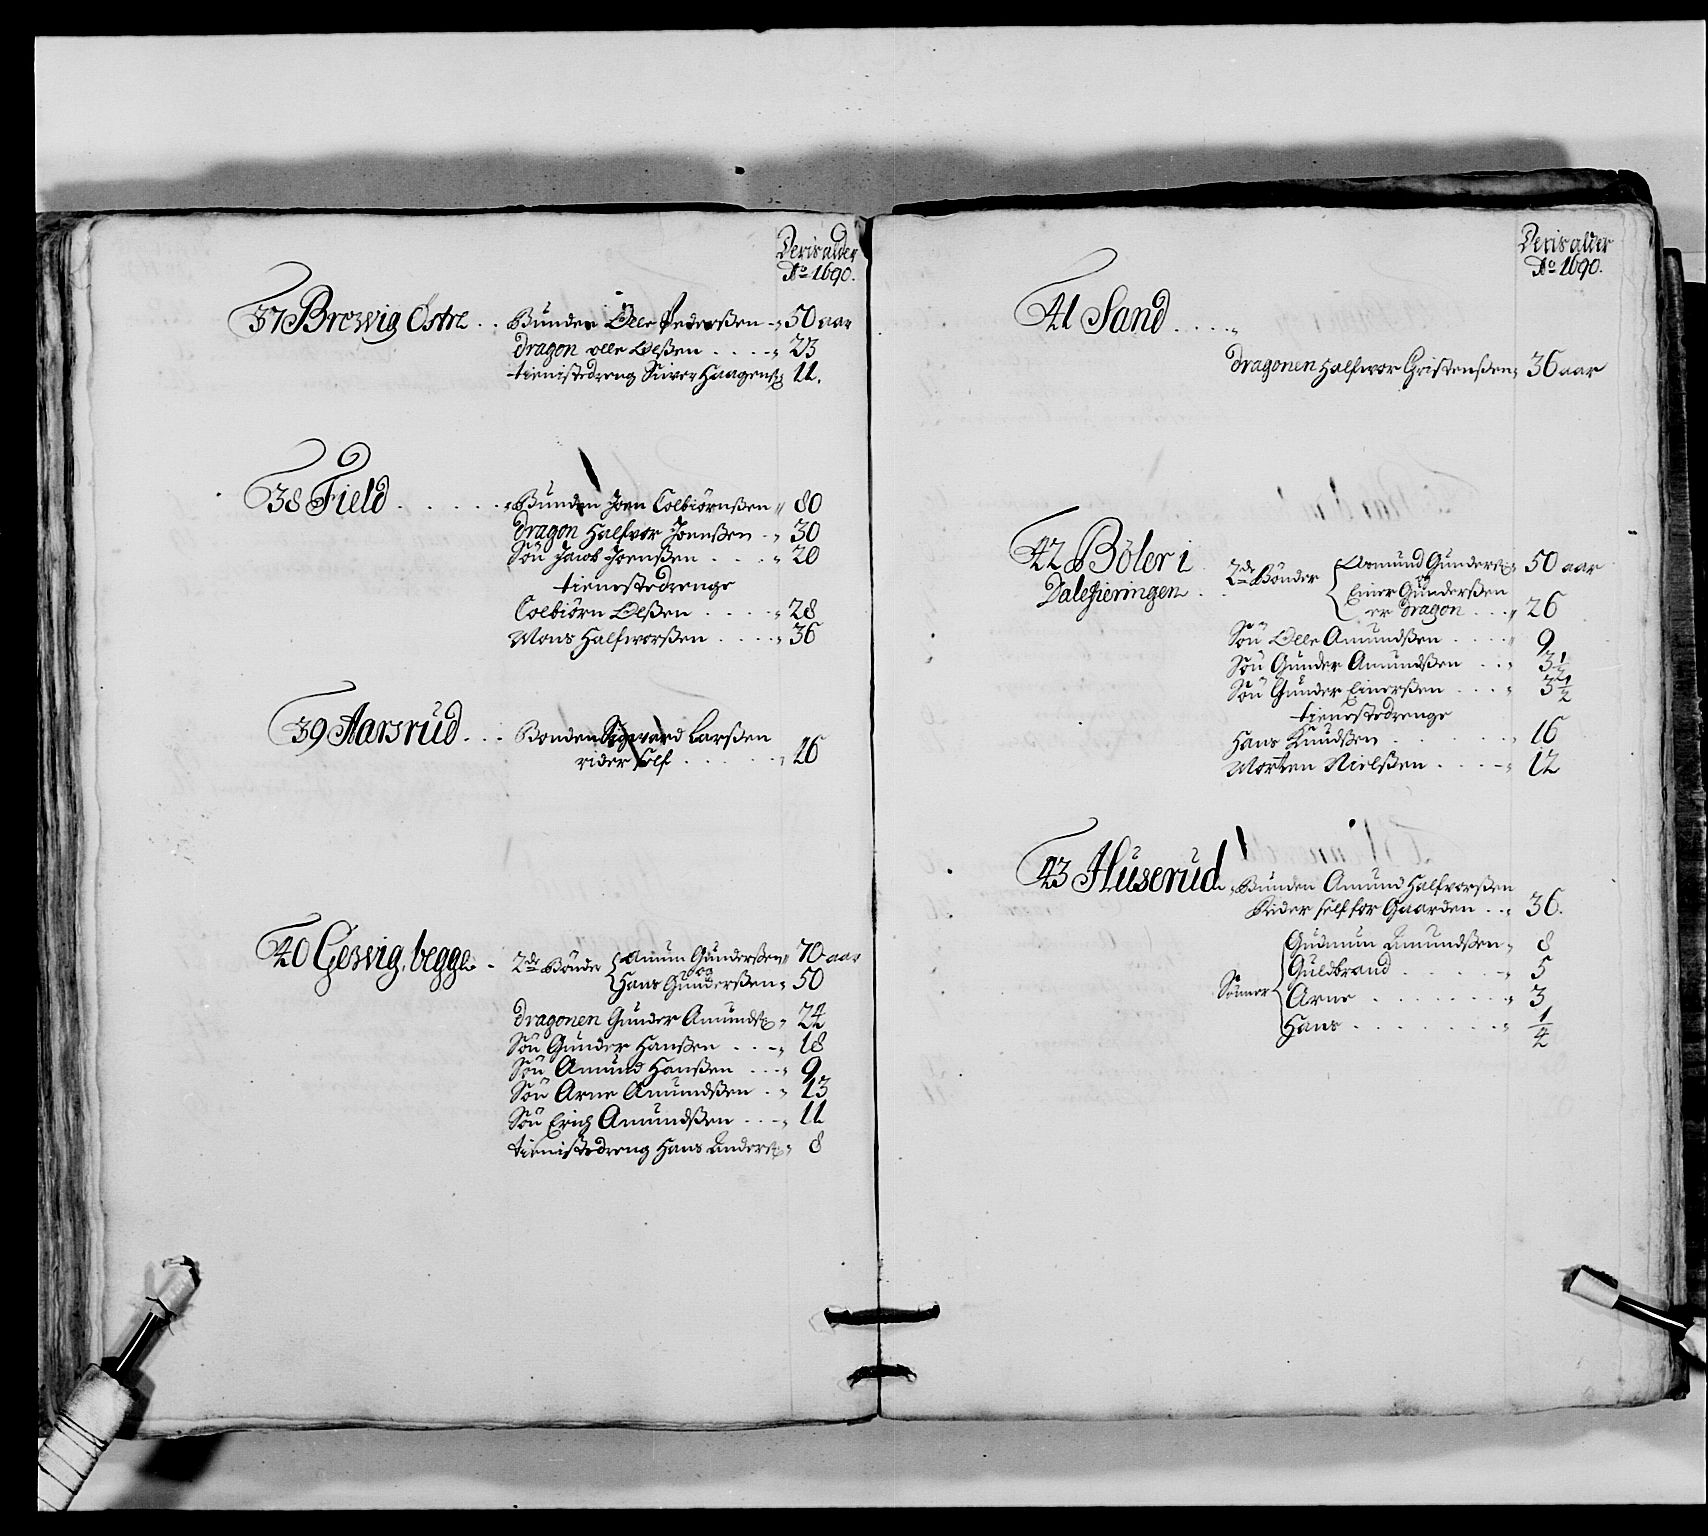 Deris alder
Ao 1690.
37 Brewig Östre . . Bunden Olle Pedersßen - 50 aar
dragon olle Olßen . . . . 23
tienistedreng Siver Haagens 11.
38 Field . . . . . . Bunden Joen Colbiörnßen 80
dragon Halfvor Joenßen . 30
Sön Jacob Joenßen . . . . 20
tienestedrenge
Colbiörn Olßen . . . . . 28
Mons Halfworßen . . . . 36
39 Aarsrud . . . Bonden Sigward Larßen
rider self . . . . . . 26
40 Gesvig, begge - 2de Bönder { Amun Gunderßen 70 aar
og
Hans Gunderßen 50
dragonen Gunder Amunds 24
Sön Gunder Hanßen . . . 18
Sön Amund Hanßen . . . 9
Sön Arne Amundßen . . 13
Sön Erich Amundßen . . . 11
tienistedreng Hans Anders 8
Deris alder
Ao 1690.
41 Sand . . . . .
dragonen Halfwor Christenßen 36 aar
42 Böler i
Dalefieringen . . 2de Bönder { Asmund Gunders 50 aar
og
Einer Gunderßen
er dragon . . . 26
Sön Olle Amundßen . . . . 9
Sön Gunder Amundßen . . . 3 1/2
Sön Gunder Einerßen . . . . 3 1/2
tienestedrenge
Hans Knudßen . . . . . . 16
Morten Nielßen . . . . . 12
43 Huserud . Bunden Amund Halfvorßen
Rider self for Gaarden . . 36.
Sönner { Gudmun Amundßen 8
Guldbrand . . . . . . 5
Arne . . . . . . . . 3
Hans . . . . . . . . 1/2